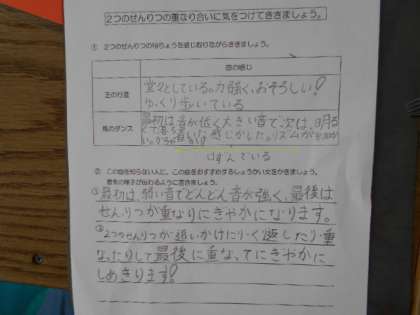 2つのせんりつの重なり合いに気をつけてききましょう。
① 2つのせんりつの特ちょうを感じ取りながらききましょう。
曲の感じ
王の行進
堂々としている。力強く、おそろしい!
ゆっくり歩いている
馬のダンス
最初は音が低く大きい音で次は、明る
くて落ち着いた感じがした。リズムが
はずんでいる
② この曲を知らない人に、この曲をおすすめするしょうかい文をかきましょう。
音楽の様子が伝わるように書きましょう。
①最初は、弱い音でどんどん音が強く、最後は
せんりつが重なりにぎやかになります。
②2つのせんりつが追いかけに行く返したり・重
なったりして最後に重なってにぎやかに
しめきります!